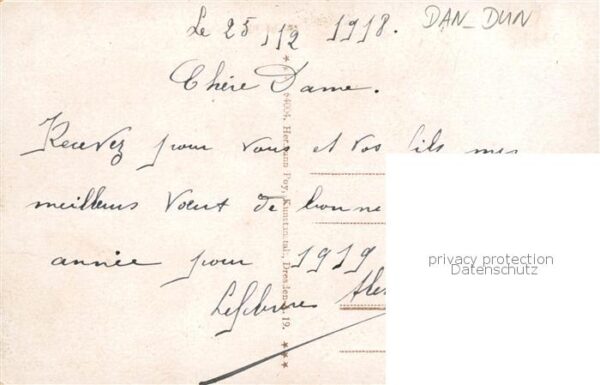 DAN_DUN
Le 25/12 1918.
Chère Dame.
Recevez pour vous et vos fils mes
meilleurs Vœut de bonne
année pour 1919
Lefebvre
64004, Hermann Poy, Kunstanstalt, Dresden-A. 19.
privacy protection
Datenschutz